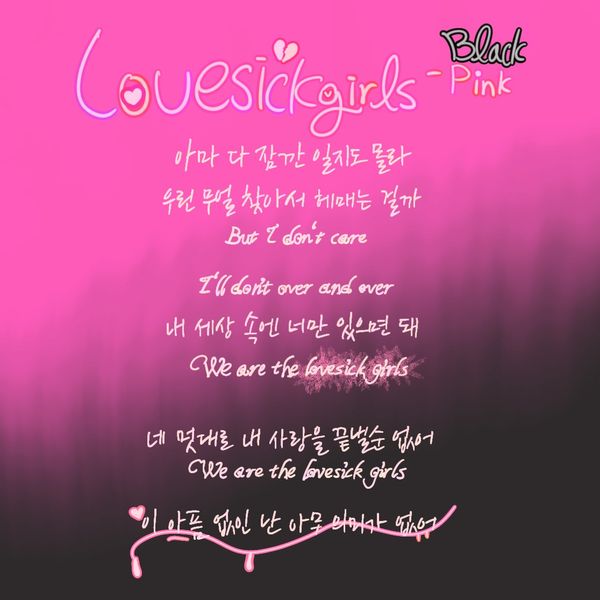 Lovesickgirls - Black Pink
아마 다 잠깐 일지도 몰라
우린 무얼 찾아서 헤매는 걸까
But I don't care
I'll don't over and over
내 세상 속엔 너만 있으면 돼
We are the lovesick girls
네 멋대로 내 사랑을 끝낼순 없어
We are the lovesick girls
이 아픔 없인 난 아무 의미가 없어